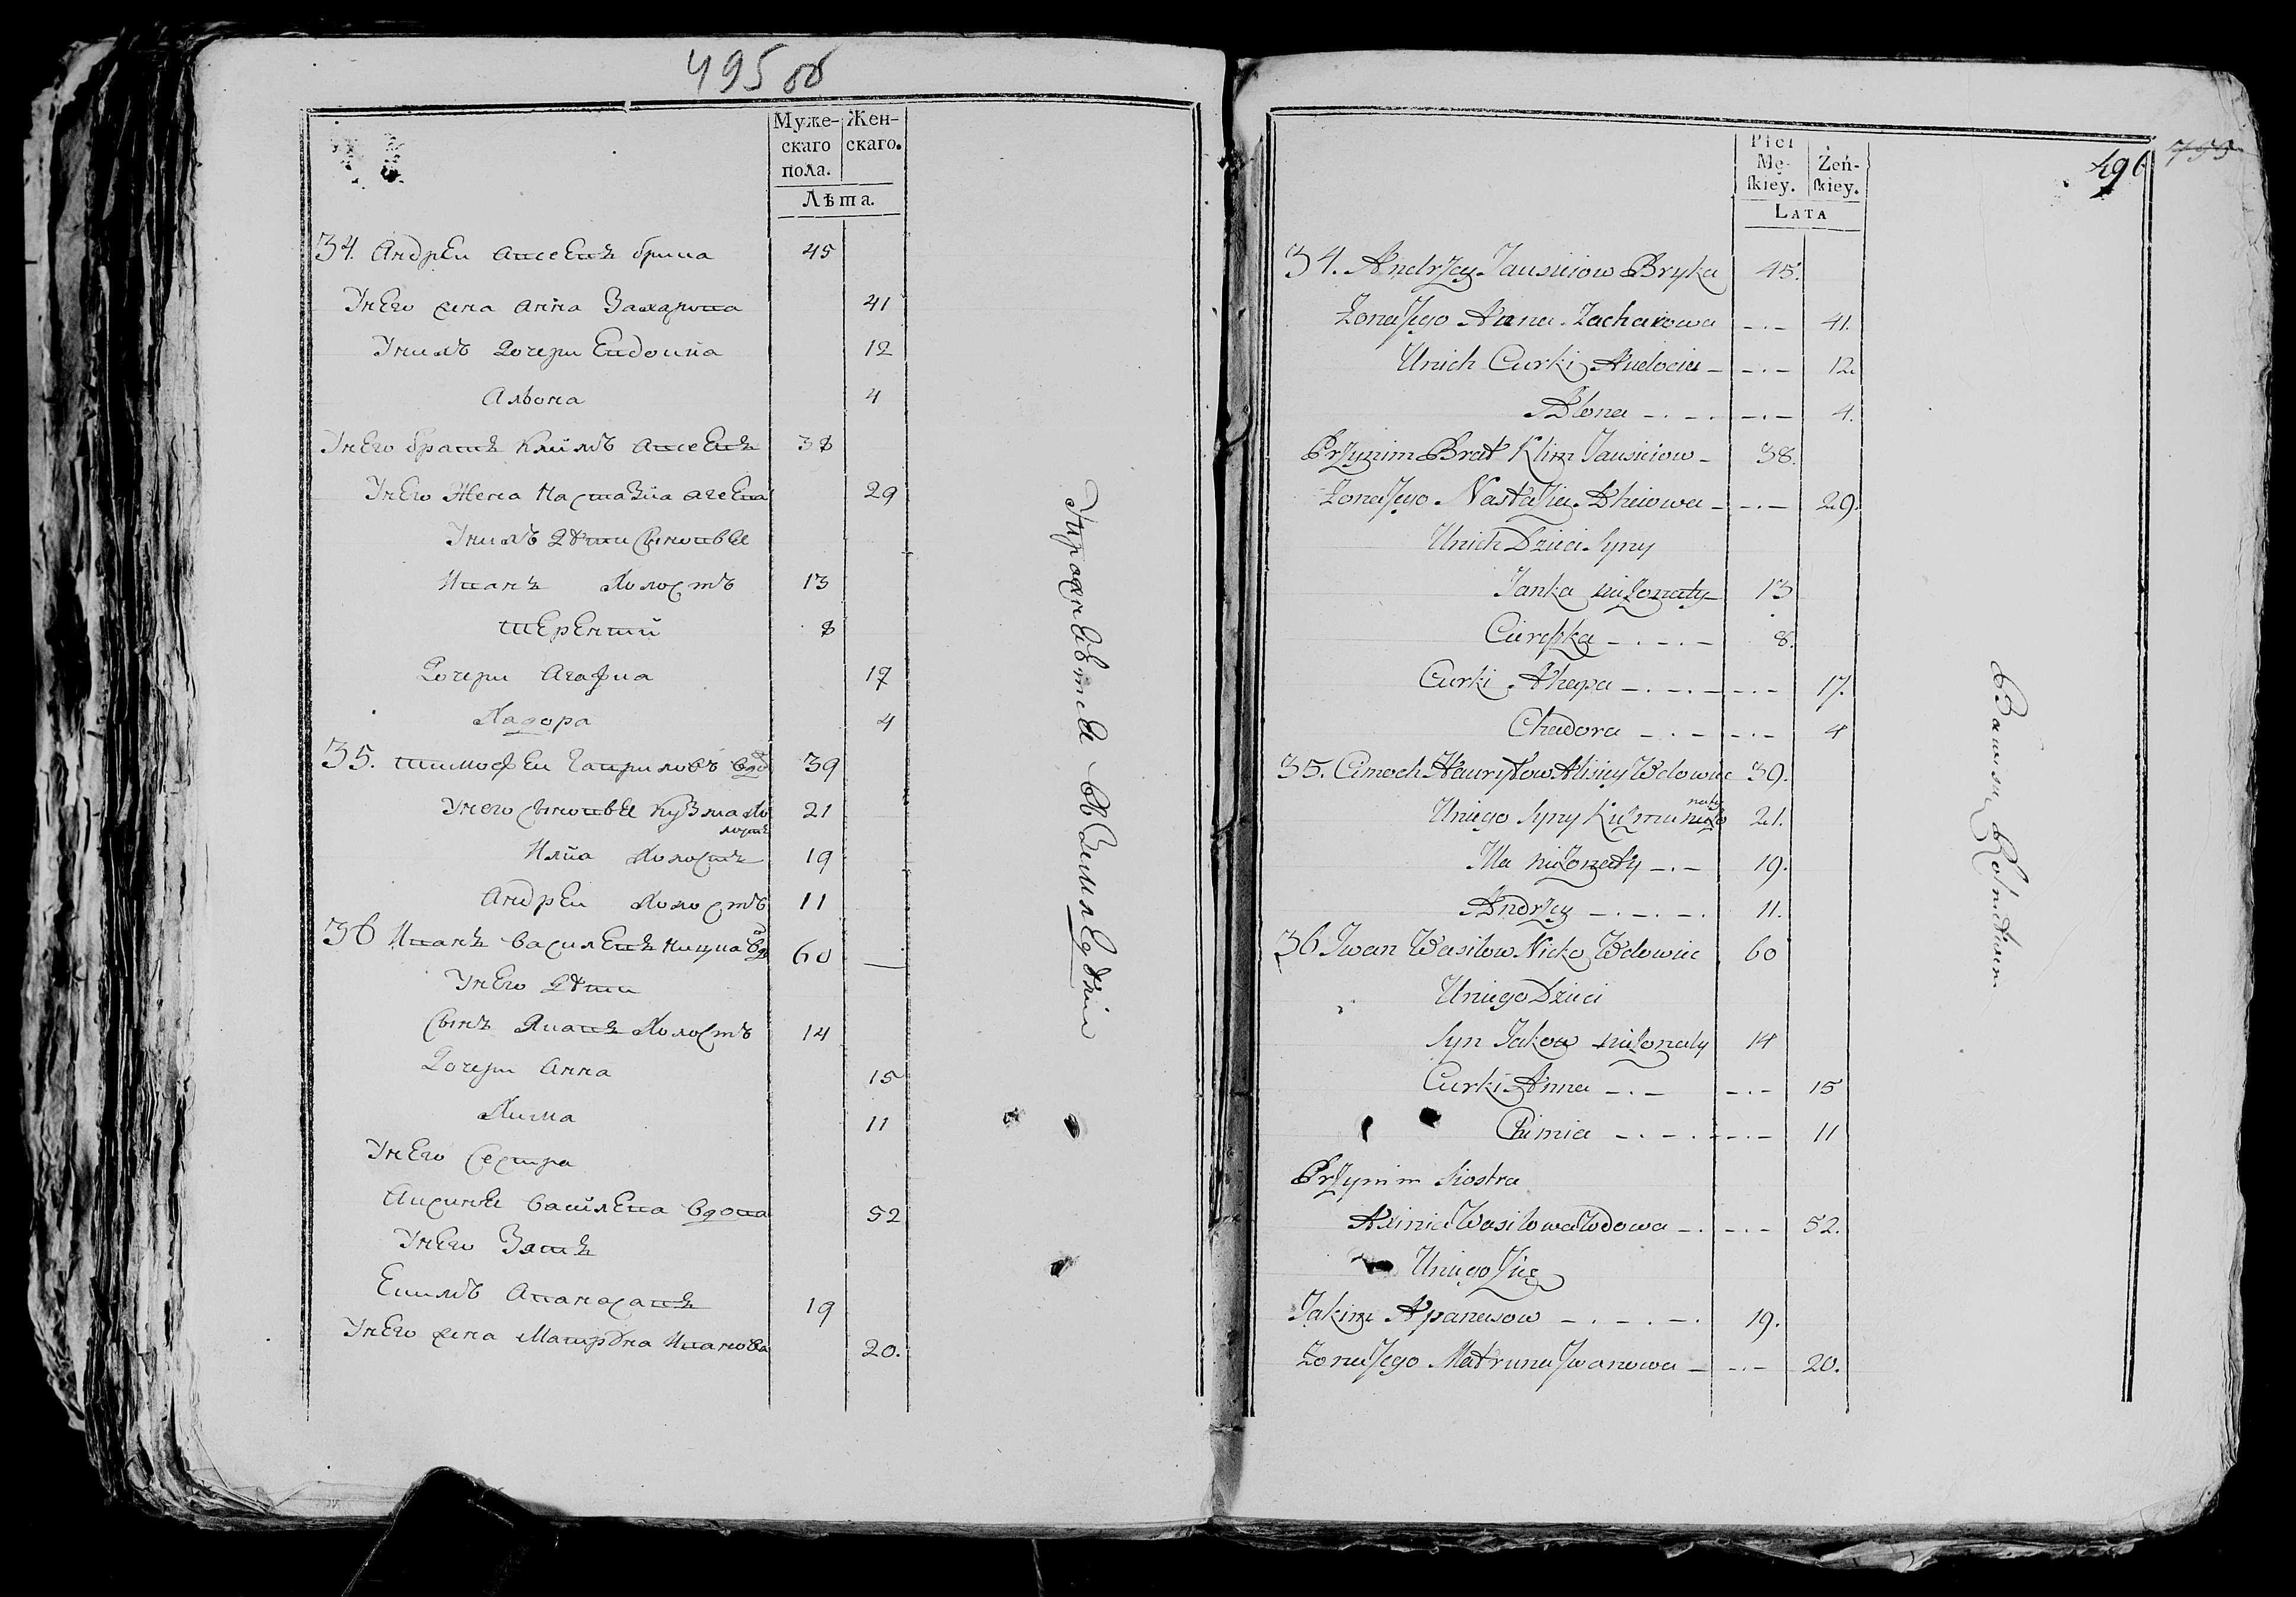 495 об
Муже-
скаго
пола.
Жен-
скаго.
Лѣта.
34. Андреи Авсеевъ брика 45
У него жена Анна Захарова 41
У нихъ дочери Евдокиа 12
Алъона 4
У него братъ Климъ Авсеевъ 38
У него жена Настазиа Агеева 29
У нихъ дѣти сыновья
Иванъ холостъ 13
Терентий 8
дочери Агафиа 17
Хадора 4
35. Тимофеи Гавриловъ вдо 39
У него сыновья Кузма хо
лостъ 21
Илйа холостъ 19
Андреи холостъ 11
36 Иванъ Василевъ Ницка вдо 60 —
У него дѣти
сынъ Якавъ холостъ 14
дочери Анна 15
Хима 11
У него сестра
Аксинья Василева вдова 52
У него зять
Екимъ Апанасавъ 19
У него жена Матрона Иванова 20.
Упражняется въ земледѣліи
496
Płci
Mę-
skiey.
Żeń-
skiey.
LATA
34. Andrzey Jausieiow Bryka 45.
Żona Jego Anna Zacharowa – . – 41.
U nich Curki Audocia – – . – 12
Alona – . – . – . – 4.
Przy nim Brat Klim Jausieiow – 38.
Żona Jego Nastazia Aheiowa – – . – 29.
U nich Dzieci Syny
Janka nieżonaty – 13
Cireszka – . – . – 8.
Curki Ahapa – . – . – . – 17.
Chadora – . – – . – 4
35. Cimoch Hauryłow Wdowiec 39.
U niego Syny Kuzma nieżo
naty 21.
Ila nieżonaty – . – 19.
Andrzey – . – . – . 11.
36. Jwan Wasilow Nicko Wdowiec 60
U niego Dzieci
Syn Jakow nieżonaty 14
Curki Anna – . – – . – 15
Chimia – . – . – . – 11
Przy nim Siostra
Axinia Wasilowa Wdowa – . – . – 52.
U niego Zięć
Jakim Apanasow – . – . – . 19.
Żona Jego Matruna Jwanowa – – . – 20.
Bawi się Rolnictwem